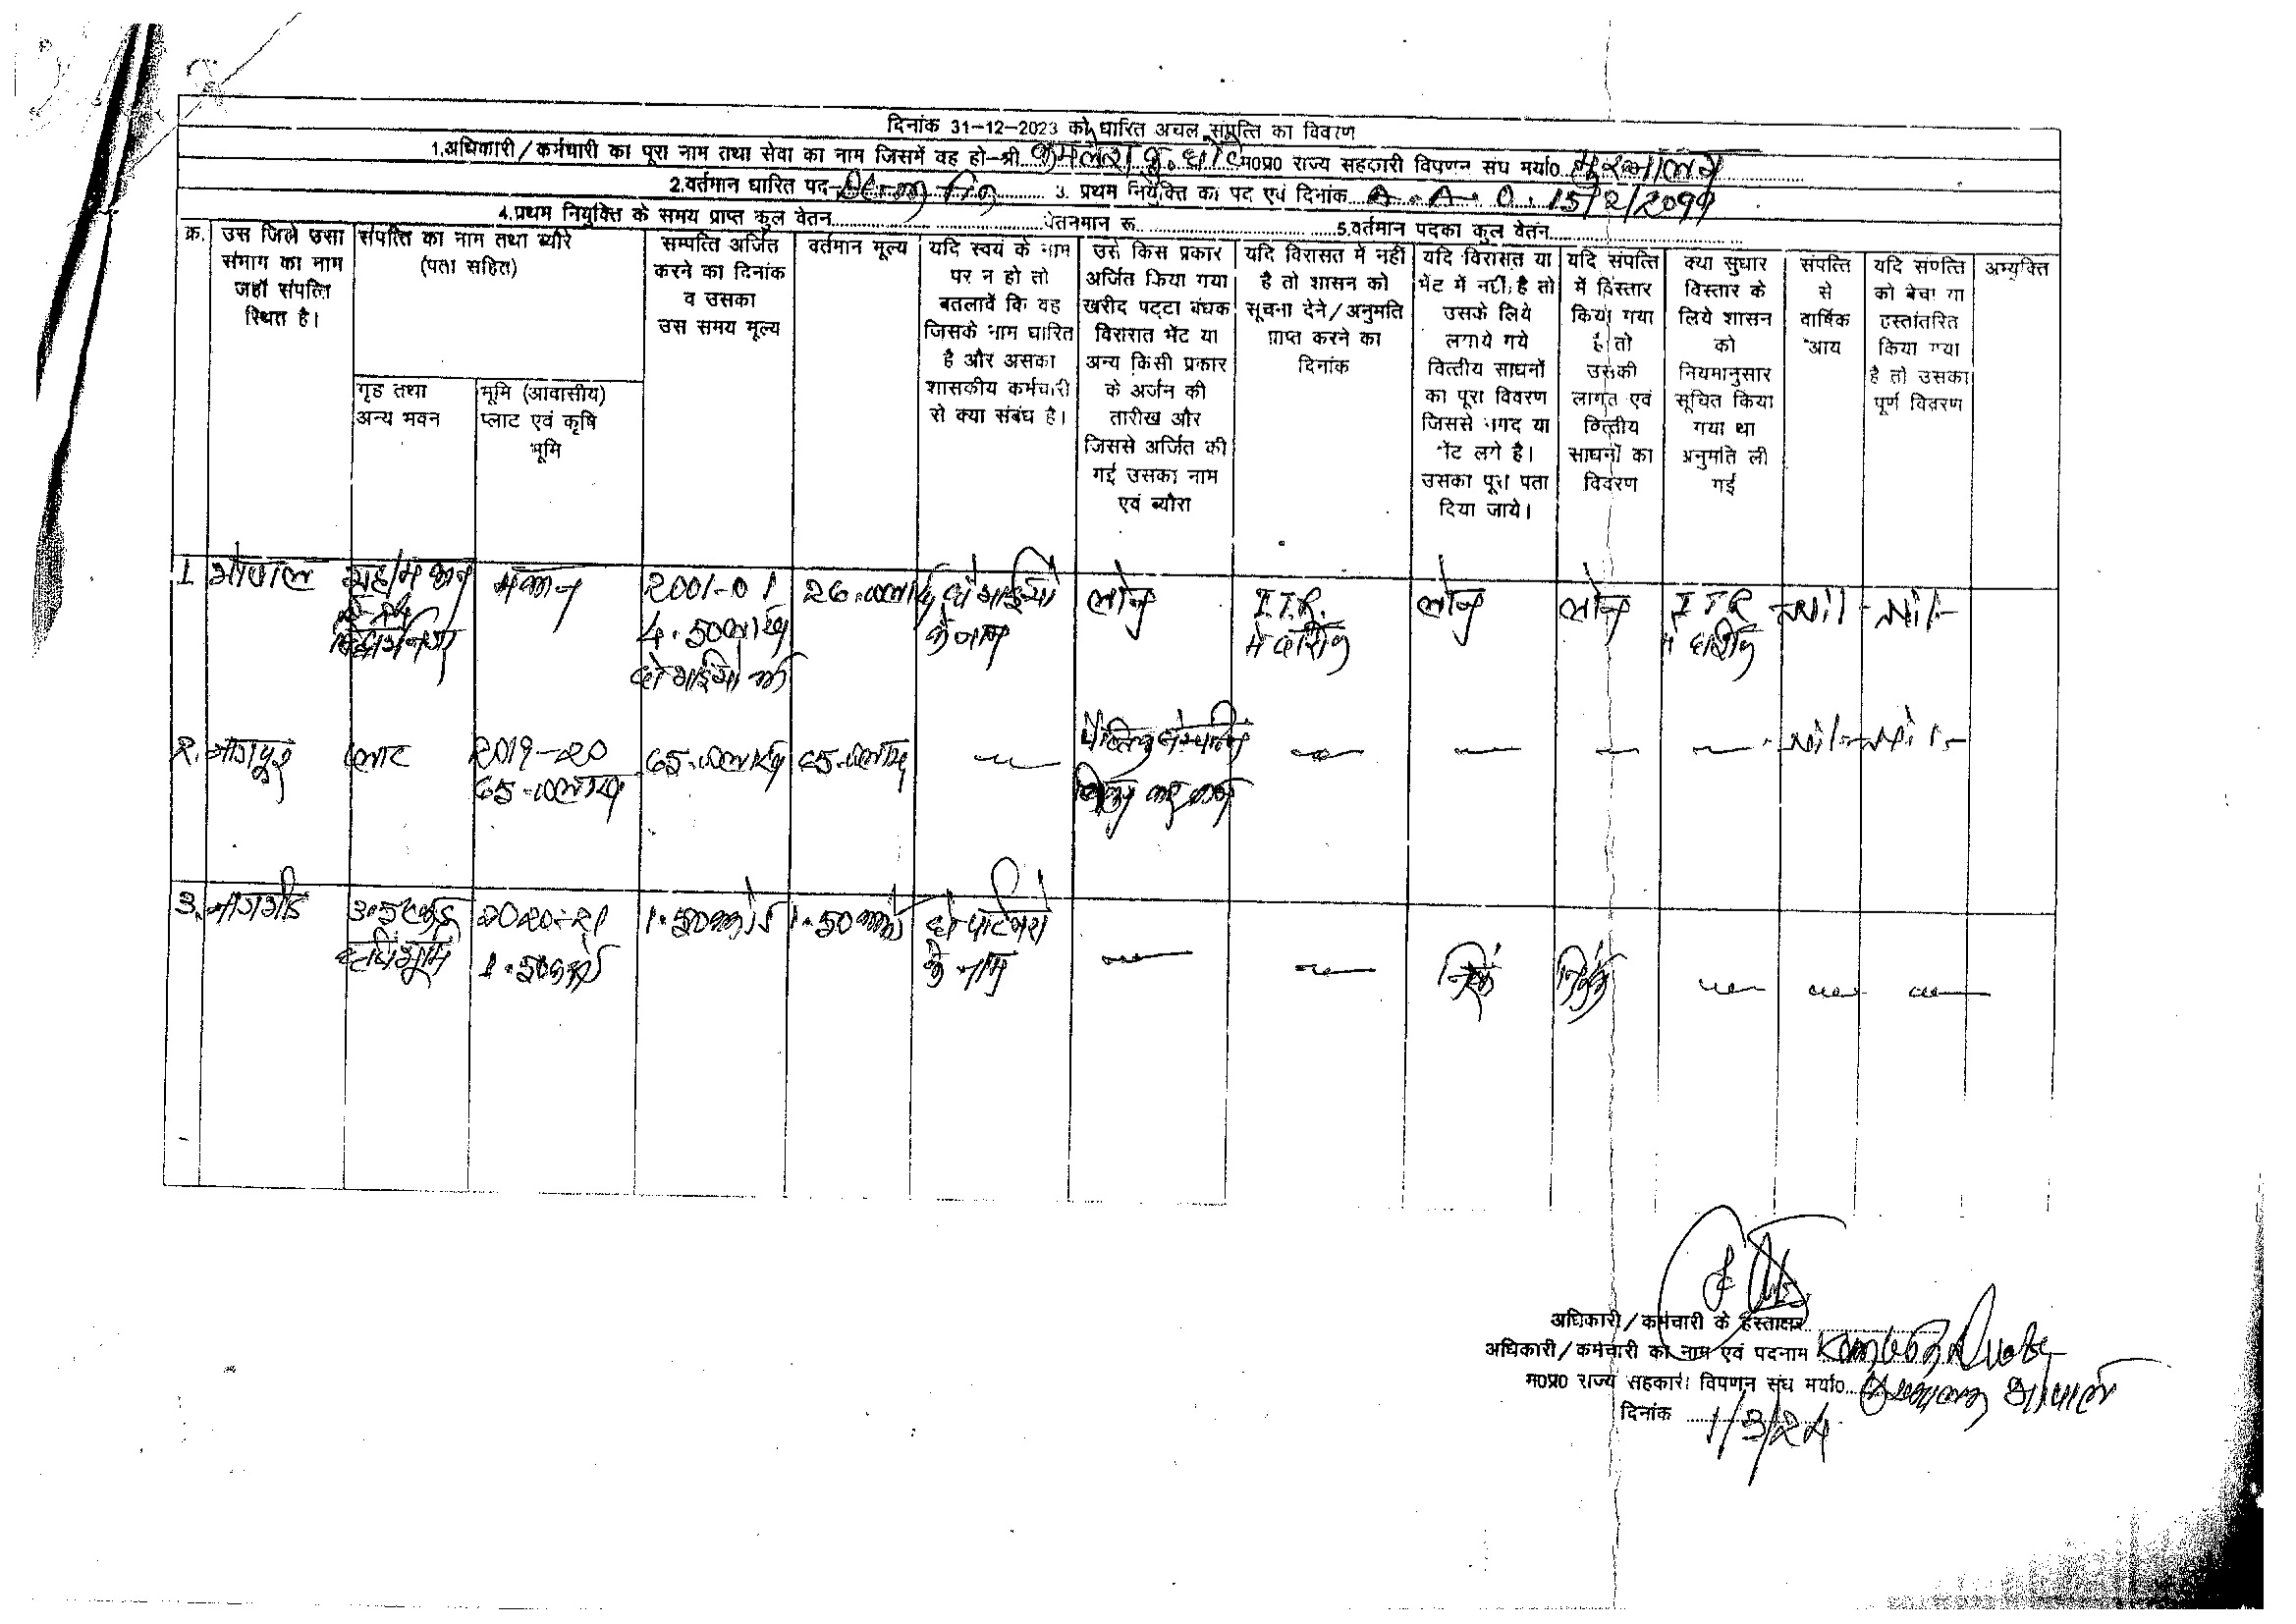 दिनांक 31-12-2023 को धारित अचल संपत्ति का विवरण
1.अधिकारी/कर्मचारी का पूरा नाम तथा सेवा का नाम जिसमें वह हो-श्री कमलेश कु. म0प्र0 राज्य सहकारी विपणन संघ मर्या0 मुख्यालय
2.वर्तमान धारित पद 3. प्रथम नियुक्ति का पद एवं दिनांक A.A.O. 15/2/
4.प्रथम नियुक्ति के समय प्राप्त कुल वेतन वेतनमान रू. 5.वर्तमान पदका कुल वेतन
क्र.
उस जिले उसा
संभाग का नाम
जहाँ संपत्ति
स्थित है।
संपत्ति का नाम तथा ब्यौरे
(पता सहित)
गृह तथा
अन्य भवन
भूमि (आवासीय)
प्लाट एवं कृषि
भूमि
सम्पत्ति अर्जित
करने का दिनांक
व उसका
उस समय मूल्य
वर्तमान मूल्य
यदि स्वयं के नाम
पर न हो तो
बतलावें कि वह
जिसके नाम धारित
है और असका
शासकीय कर्मचारी
से क्या संबंध है।
उसे किस प्रकार
अर्जित किया गया
खरीद पट्टा बंधक
विरासत भेंट या
अन्य किसी प्रकार
के अर्जन की
तारीख और
जिससे अर्जित की
गई उसका नाम
एवं ब्यौरा
यदि विरासत में नहीं
है तो शासन को
सूचना देने/अनुमति
प्राप्त करने का
दिनांक
यदि विरासत या
भेंट में नहीं है तो
उसके लिये
लगाये गये
वित्तीय साधनों
का पूरा विवरण
जिससे नगद या
भेंट लगे है।
उसका पूरा पता
दिया जाये।
यदि संपत्ति
में विस्तार
किया गया
है तो
उसकी
लागत एवं
वित्तीय
साधनों का
विवरण
क्या सुधार
विस्तार के
लिये शासन
को
नियमानुसार
सूचित किया
गया था
अनुमति ली
गई
संपत्ति
से
वार्षिक
आय
यदि संपत्ति
को बेचा या
हस्तांतरित
किया गया
है तो उसका
पूर्ण विवरण
अभ्युक्ति
1 भोपाल
मकान
2001-01
4.50 लाख
दो भाईयो
26.00 लाख
दो भाईयो
के नाम
लोन
I.T.R.
में दर्शित
लोन
लोन
I T R
में दर्शित
-Nil-
-Nil-
2. नागपुर
प्लाट
2019-20
65.00 लाख
65.00 लाख
65.00 लाख
-Nil-
-Nil-
3. नागभीड
कृषि भूमि
2020-21
1.50 करोड
1.50 करोड
1.50 करोड
दो पार्टनरो
के नाम
अधिकारी/कर्मचारी के हस्ताक्षर
अधिकारी/कर्मचारी का नाम एवं पदनाम
म0प्र0 राज्य सहकारी विपणन संघ मर्या0 मुख्यालय भोपाल
दिनांक 1/3/24